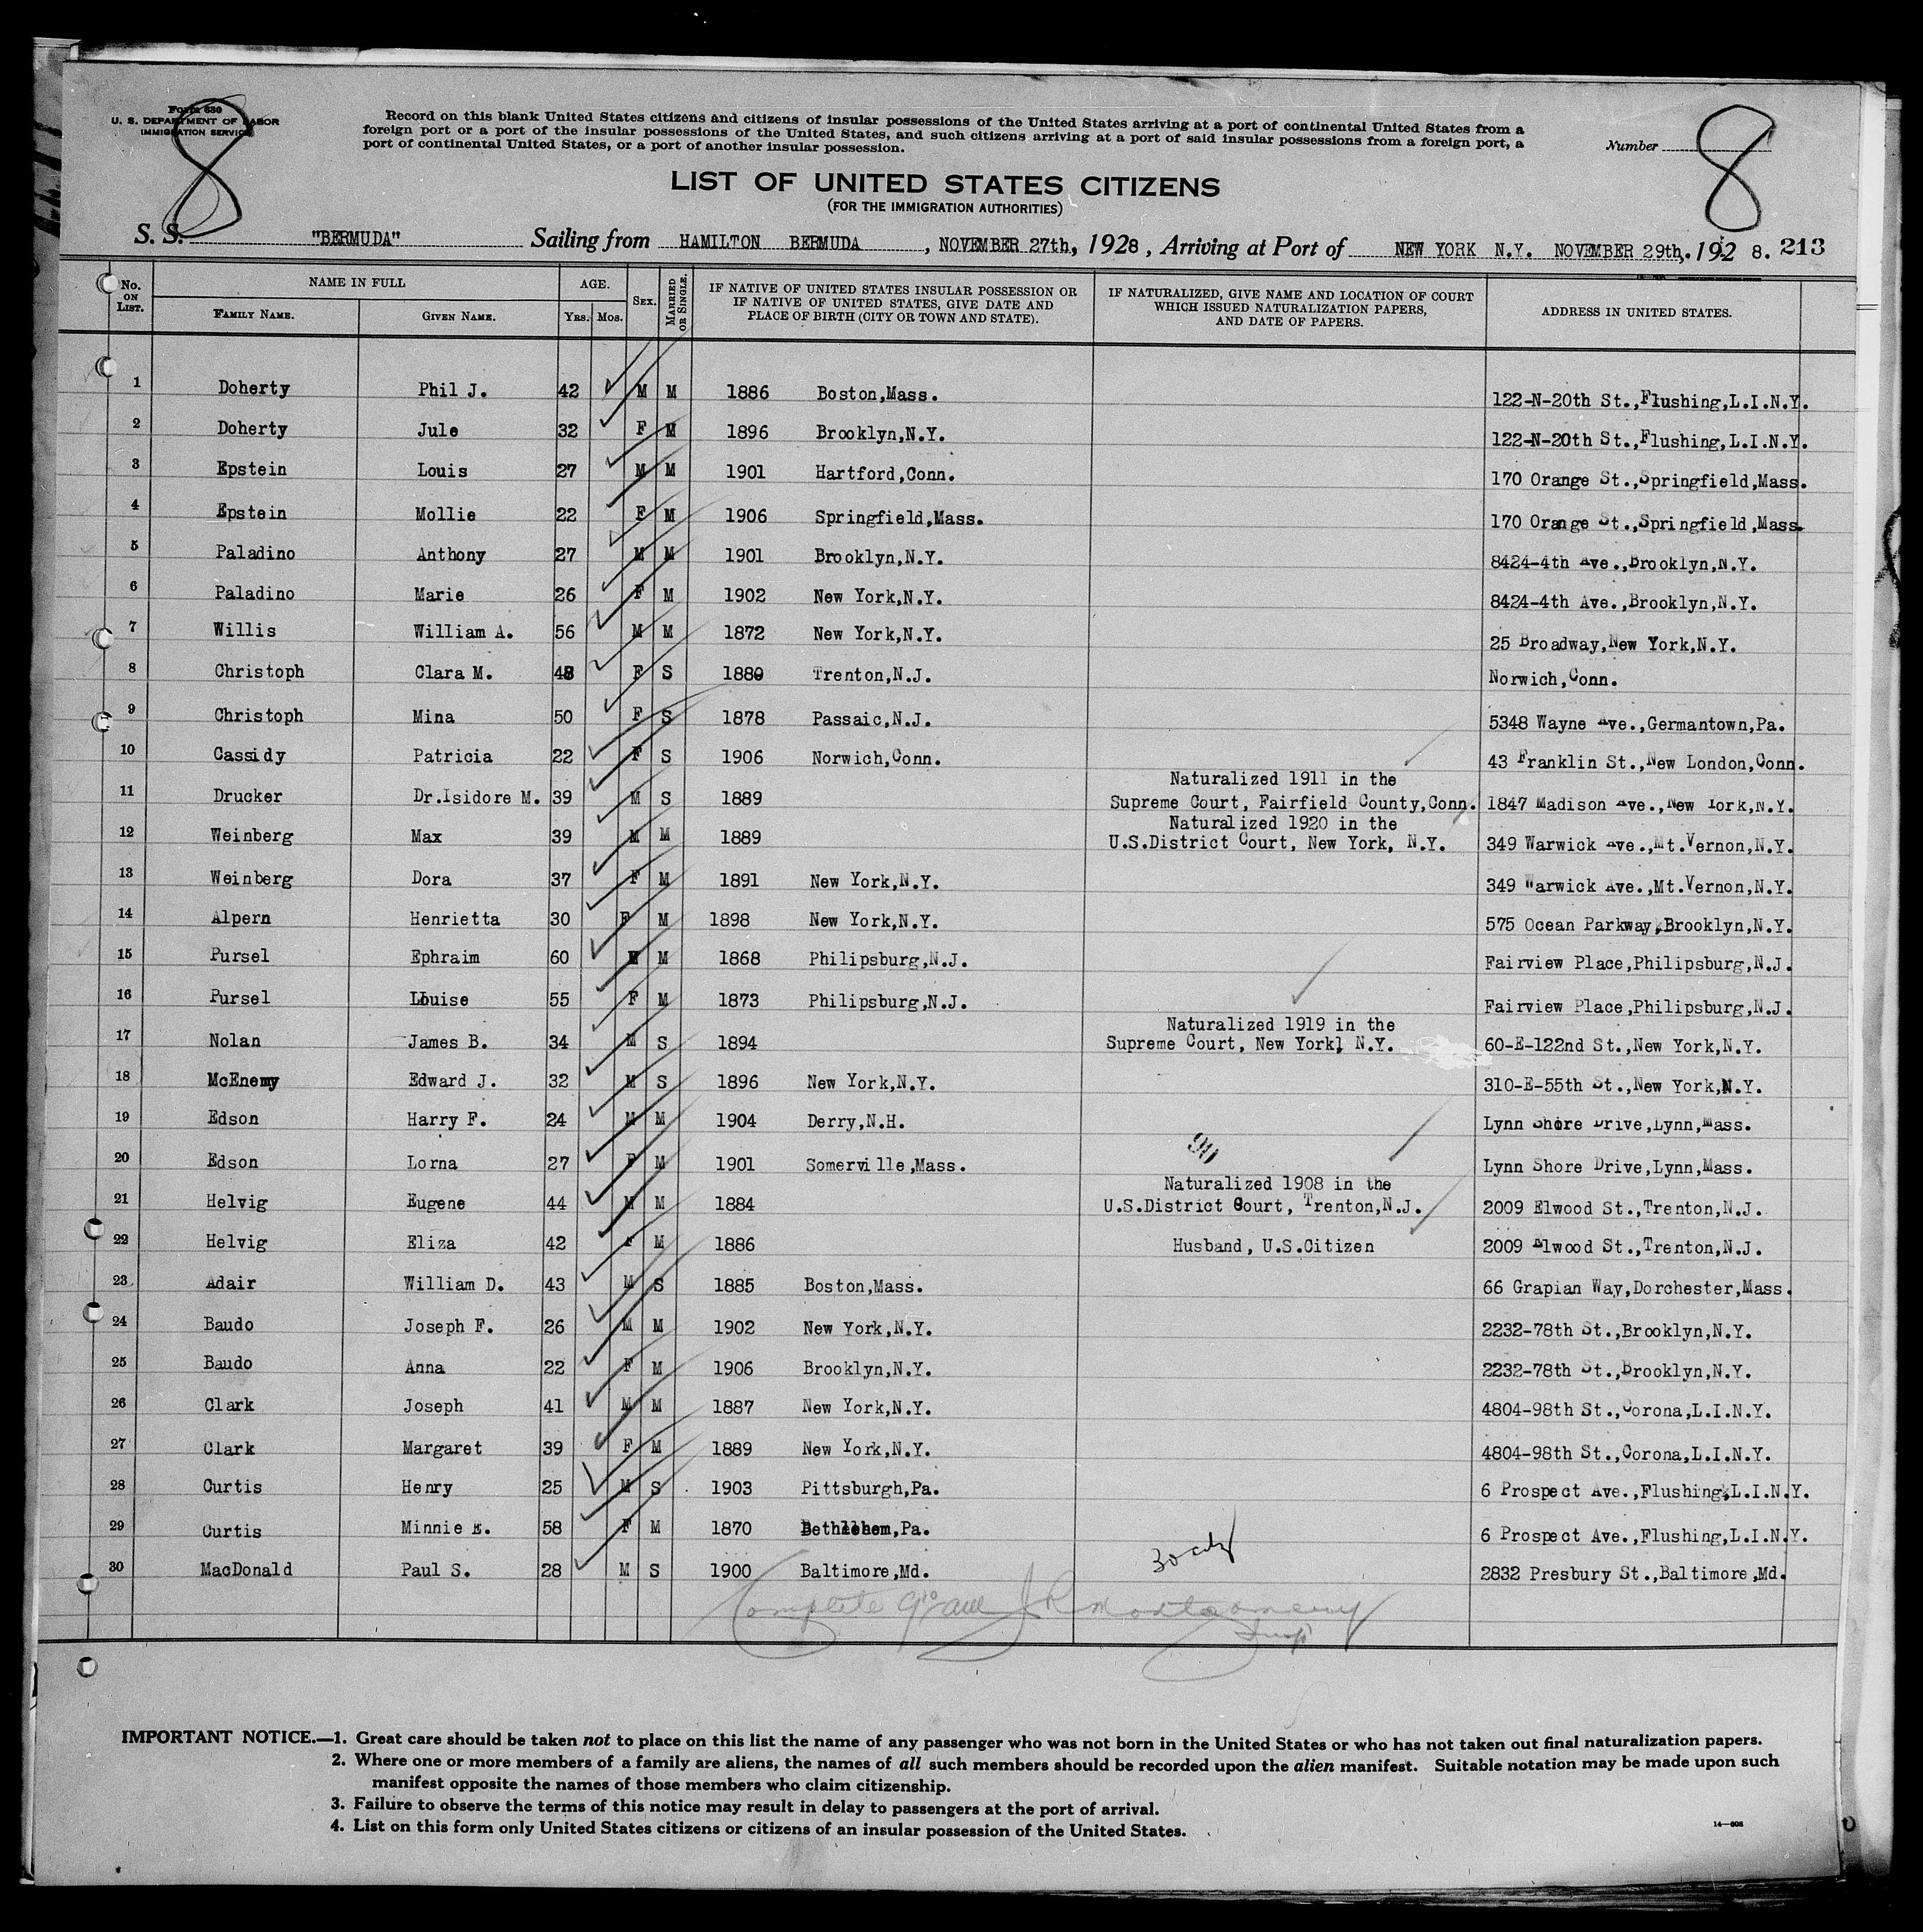 Form 630
U. S. DEPARTMENT OF LABOR
IMMIGRATION SERVICE
8
Record on this blank United States citizens and citizens of insular possessions of the United States arriving at a port of continental United States from a
foreign port or a port of the insular possessions of the United States, and such citizens arriving at a port of said insular possessions from a foreign port, a
port of continental United States, or a port of another insular possession.
Number 8
LIST OF UNITED STATES CITIZENS
(FOR THE IMMIGRATION AUTHORITIES)
S. S. "BERMUDA" Sailing from HAMILTON BERMUDA, NOVEMBER 27th, 1928, Arriving at Port of NEW YORK N.Y. NOVEMBER 29th, 192 8. 213
No. ON LIST. NAME IN FULL FAMILY NAME. GIVEN NAME. AGE. YRS. MOS. SEX. MARRIED OR SINGLE. IF NATIVE OF UNITED STATES INSULAR POSSESSION OR IF NATIVE OF UNITED STATES, GIVE DATE AND PLACE OF BIRTH (CITY OR TOWN AND STATE). IF NATURALIZED, GIVE NAME AND LOCATION OF COURT WHICH ISSUED NATURALIZATION PAPERS, AND DATE OF PAPERS. ADDRESS IN UNITED STATES.
1 Doherty Phil J. 42 M M 1886 Boston,Mass. 122-N-20th St.,Flushing,L.I.N.Y.
2 Doherty Jule 32 F M 1896 Brooklyn,N.Y. 122-N-20th St.,Flushing,L.I.N.Y.
3 Epstein Louis 27 M M 1901 Hartford,Conn. 170 Orange St.,Springfield,Mass.
4 Epstein Mollie 22 F M 1906 Springfield,Mass. 170 Orange St.,Springfield,Mass.
5 Paladino Anthony 27 M M 1901 Brooklyn,N.Y. 8424-4th Ave.,Brooklyn,N.Y.
6 Paladino Marie 26 F M 1902 New York,N.Y. 8424-4th Ave.,Brooklyn,N.Y.
7 Willis William A. 56 M M 1872 New York,N.Y. 25 Broadway,New York,N.Y.
8 Christoph Clara M. 48 F S 1880 Trenton,N.J. Norwich,Conn.
9 Christoph Mina 50 F S 1878 Passaic,N.J. 5348 Wayne Ave.,Germantown,Pa.
10 Cassidy Patricia 22 F S 1906 Norwich,Conn. 43 Franklin St.,New London,Conn.
11 Drucker Dr.Isidore M. 39 M S 1889 Naturalized 1911 in the Supreme Court, Fairfield County,Conn. 1847 Madison Ave.,New York,N.Y.
12 Weinberg Max 39 M M 1889 Naturalized 1920 in the U.S.District Court, New York, N.Y. 349 Warwick Ave.,Mt.Vernon,N.Y.
13 Weinberg Dora 37 F M 1891 New York,N.Y. 349 Warwick Ave.,Mt.Vernon,N.Y.
14 Alpern Henrietta 30 F M 1898 New York,N.Y. 575 Ocean Parkway,Brooklyn,N.Y.
15 Pursel Ephraim 60 M M 1868 Philipsburg,N.J. Fairview Place,Philipsburg,N.J.
16 Pursel Louise 55 F M 1873 Philipsburg,N.J. Fairview Place,Philipsburg,N.J.
17 Nolan James B. 34 M S 1894 Naturalized 1919 in the Supreme Court, New York, N.Y. 60-E-122nd St.,New York,N.Y.
18 McEnemy Edward J. 32 M S 1896 New York,N.Y. 310-E-55th St.,New York,N.Y.
19 Edson Harry F. 24 M M 1904 Derry,N.H. Lynn Shore Drive,Lynn,Mass.
20 Edson Lorna 27 F M 1901 Somerville,Mass. Lynn Shore Drive,Lynn,Mass.
21 Helvig Eugene 44 M M 1884 Naturalized 1908 in the U.S.District Court, Trenton,N.J. 2009 Elwood St.,Trenton,N.J.
22 Helvig Eliza 42 F M 1886 Husband, U.S.Citizen 2009 Elwood St.,Trenton,N.J.
23 Adair William D. 43 M S 1885 Boston,Mass. 66 Grapian Way,Dorchester,Mass.
24 Baudo Joseph F. 26 M M 1902 New York,N.Y. 2232-78th St.,Brooklyn,N.Y.
25 Baudo Anna 22 F M 1906 Brooklyn,N.Y. 2232-78th St.,Brooklyn,N.Y.
26 Clark Joseph 41 M M 1887 New York,N.Y. 4804-98th St.,Corona,L.I.N.Y.
27 Clark Margaret 39 F M 1889 New York,N.Y. 4804-98th St.,Corona,L.I.N.Y.
28 Curtis Henry 25 M S 1903 Pittsburgh,Pa. 6 Prospect Ave.,Flushing,L.I.N.Y.
29 Curtis Minnie E. 58 F M 1870 Bethlehem,Pa. 6 Prospect Ave.,Flushing,L.I.N.Y.
30 MacDonald Paul S. 28 M S 1900 Baltimore,Md. 2832 Presbury St.,Baltimore,Md.
Complete J R Montgomery
Insp
IMPORTANT NOTICE.—1. Great care should be taken not to place on this list the name of any passenger who was not born in the United States or who has not taken out final naturalization papers.
2. Where one or more members of a family are aliens, the names of all such members should be recorded upon the alien manifest. Suitable notation may be made upon such
manifest opposite the names of those members who claim citizenship.
3. Failure to observe the terms of this notice may result in delay to passengers at the port of arrival.
4. List on this form only United States citizens or citizens of an insular possession of the United States.
14—608